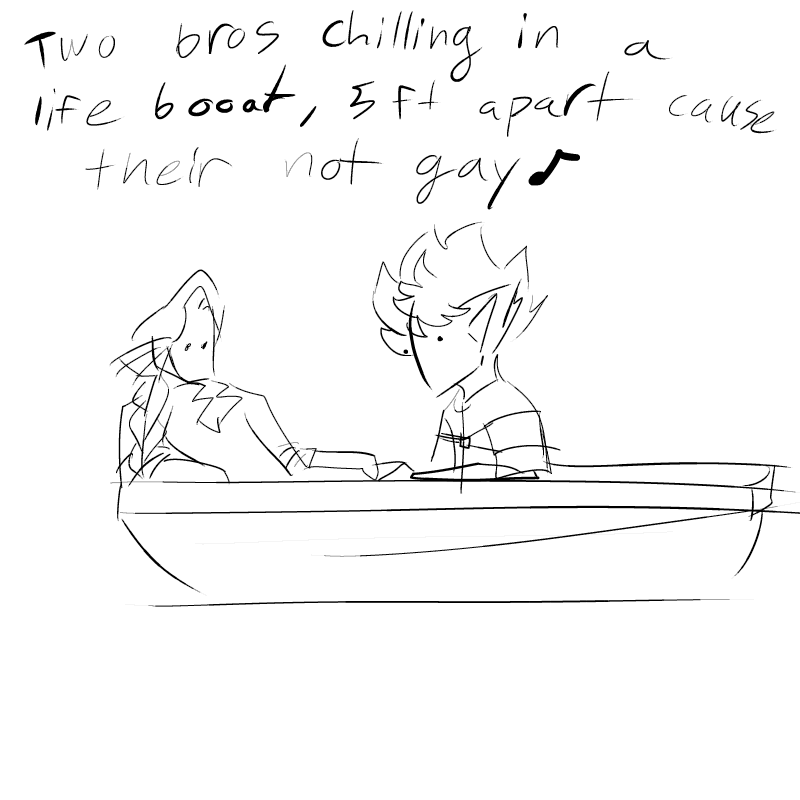 Two bros chilling in a
life booat, 5 ft apart cause
their not gay♪